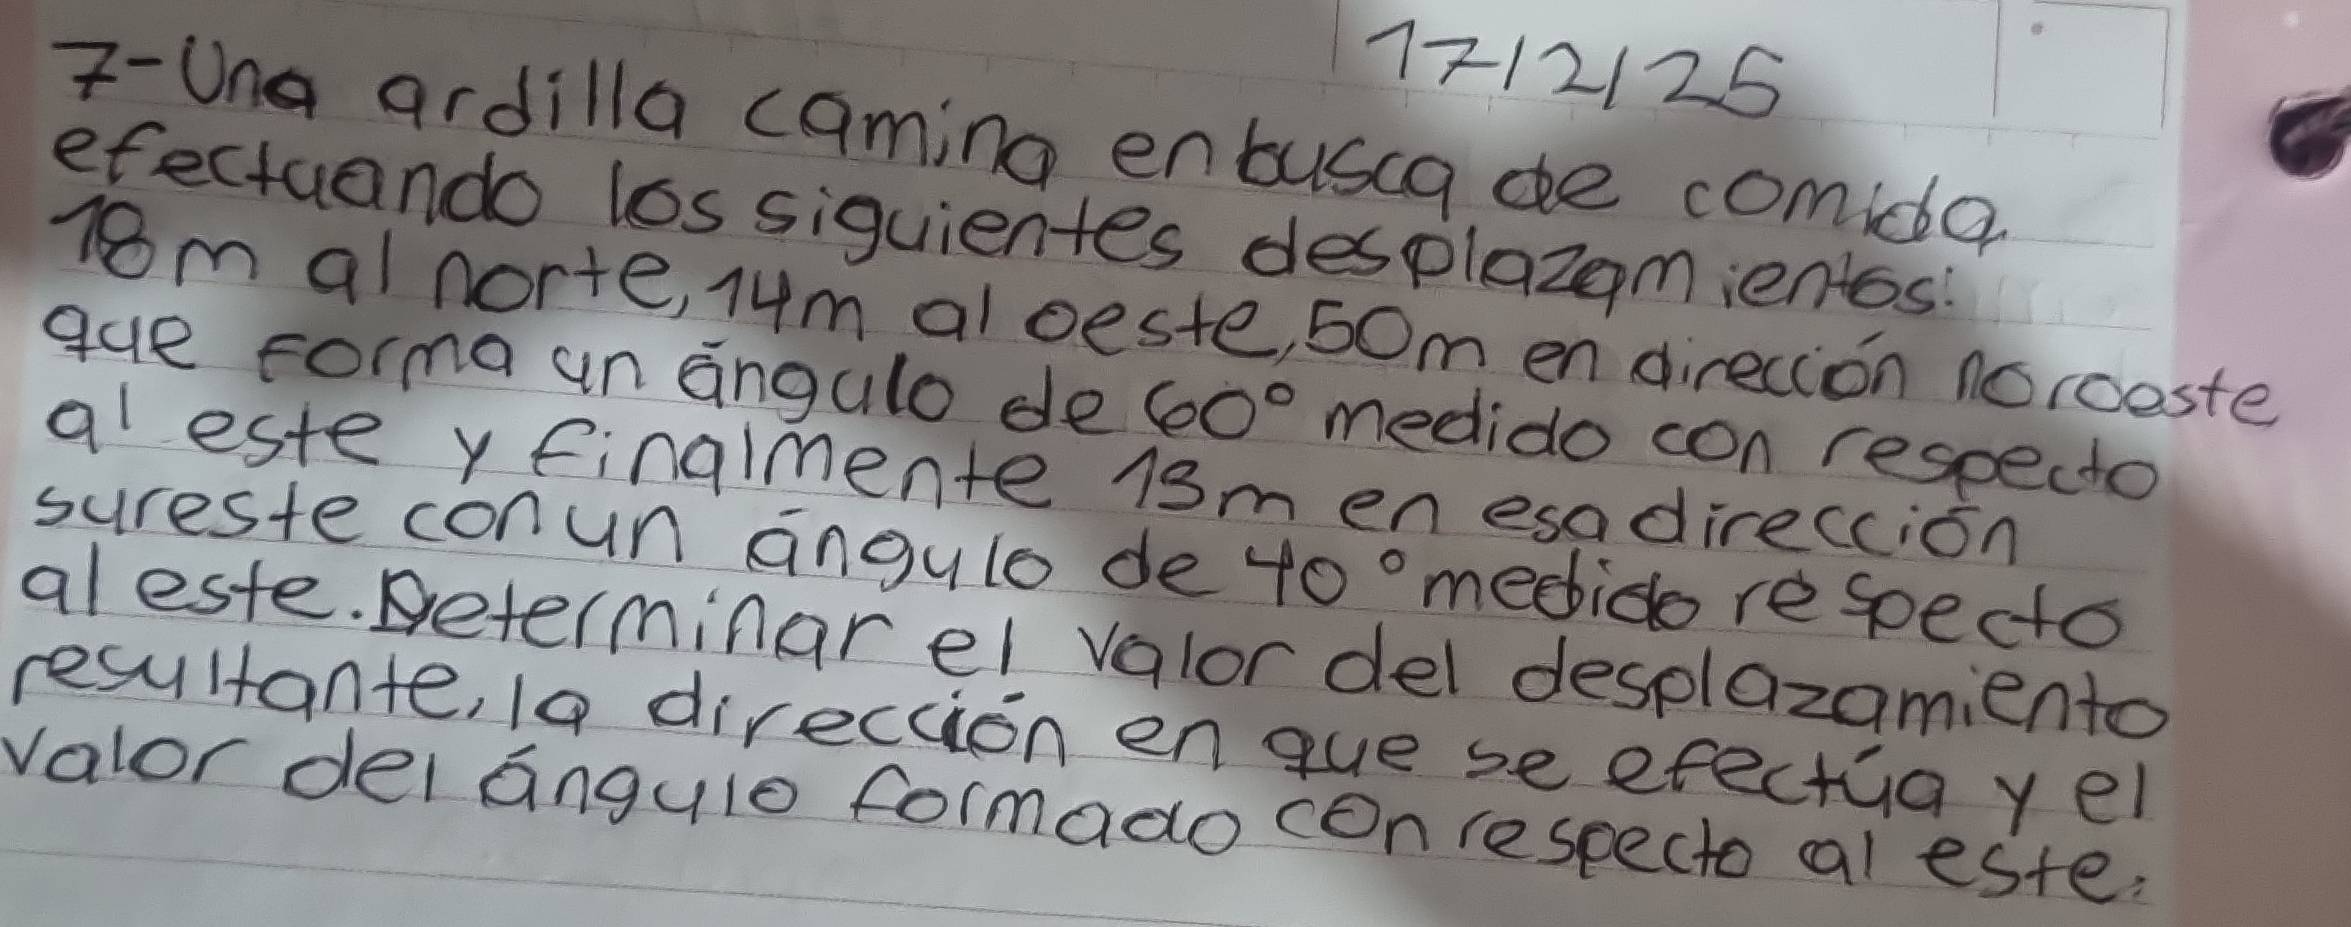 17/2/25
7-Una ardilla camina enbusca de comida
efectuando los siguientes desplazamientos:
18m al norte, 14m al oeste, 50m en dirección noroeste
que forma un ángulo de 60° medido con respecto
al este y finalmente 13m en esa dirección
sureste con un ángulo de 40° medido respecto
al este. Determinar el valor del desplazamiento
resultante, la dirección en que se efectúa y el
valor del ángulo formado con respecto al este.